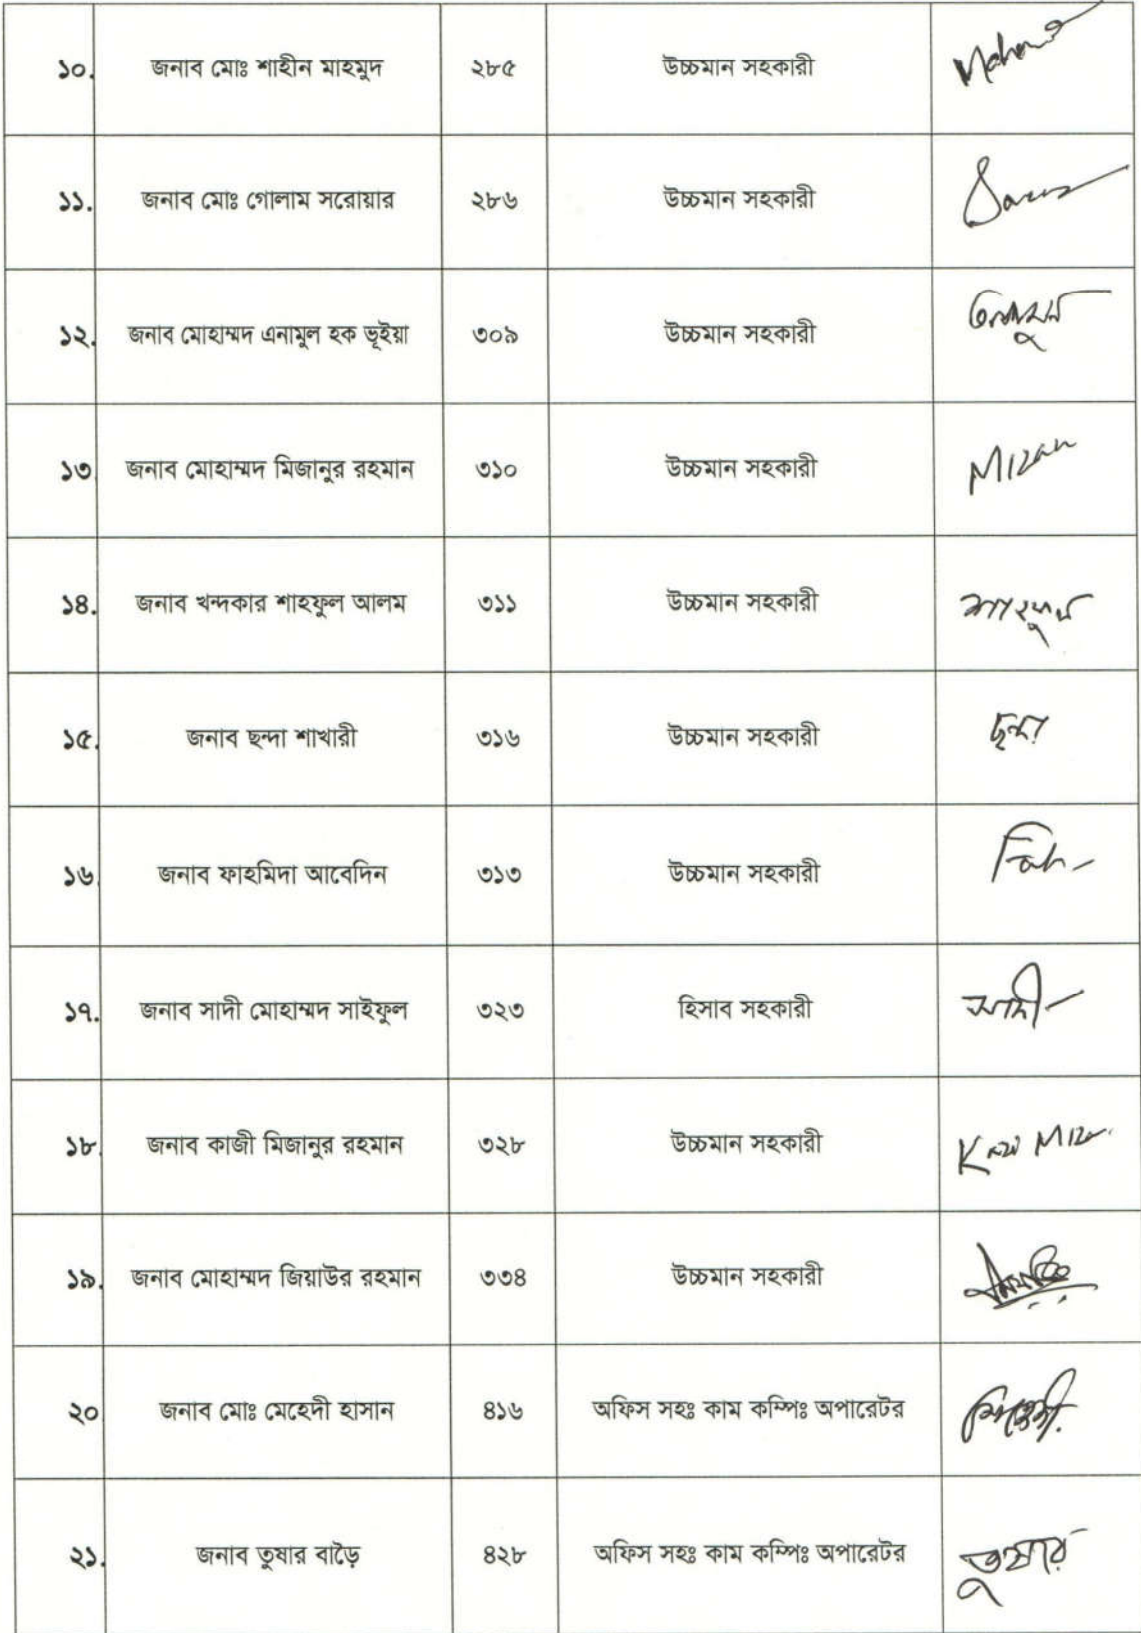 ১০. জনাব মোঃ শাহীন মাহমুদ ২৮৫ উচ্চমান সহকারী
১১. জনাব মোঃ গোলাম সরোয়ার ২৮৬ উচ্চমান সহকারী
১২. জনাব মোহাম্মদ এনামুল হক ভূইয়া ৩০৯ উচ্চমান সহকারী
১৩ জনাব মোহাম্মদ মিজানুর রহমান ৩১০ উচ্চমান সহকারী Mizan
১৪. জনাব খন্দকার শাহফুল আলম ৩১১ উচ্চমান সহকারী শাহফুল
১৫. জনাব ছন্দা শাখারী ৩১৬ উচ্চমান সহকারী ছন্দা
১৬ জনাব ফাহমিদা আবেদিন ৩১৩ উচ্চমান সহকারী Fah
১৭. জনাব সাদী মোহাম্মদ সাইফুল ৩২৩ হিসাব সহকারী সাদী
১৮ জনাব কাজী মিজানুর রহমান ৩২৮ উচ্চমান সহকারী
১৯. জনাব মোহাম্মদ জিয়াউর রহমান ৩৩৪ উচ্চমান সহকারী
২০ জনাব মোঃ মেহেদী হাসান ৪১৬ অফিস সহঃ কাম কম্পিঃ অপারেটর
২১. জনাব তুষার বাড়ৈ ৪২৮ অফিস সহঃ কাম কম্পিঃ অপারেটর তুষার